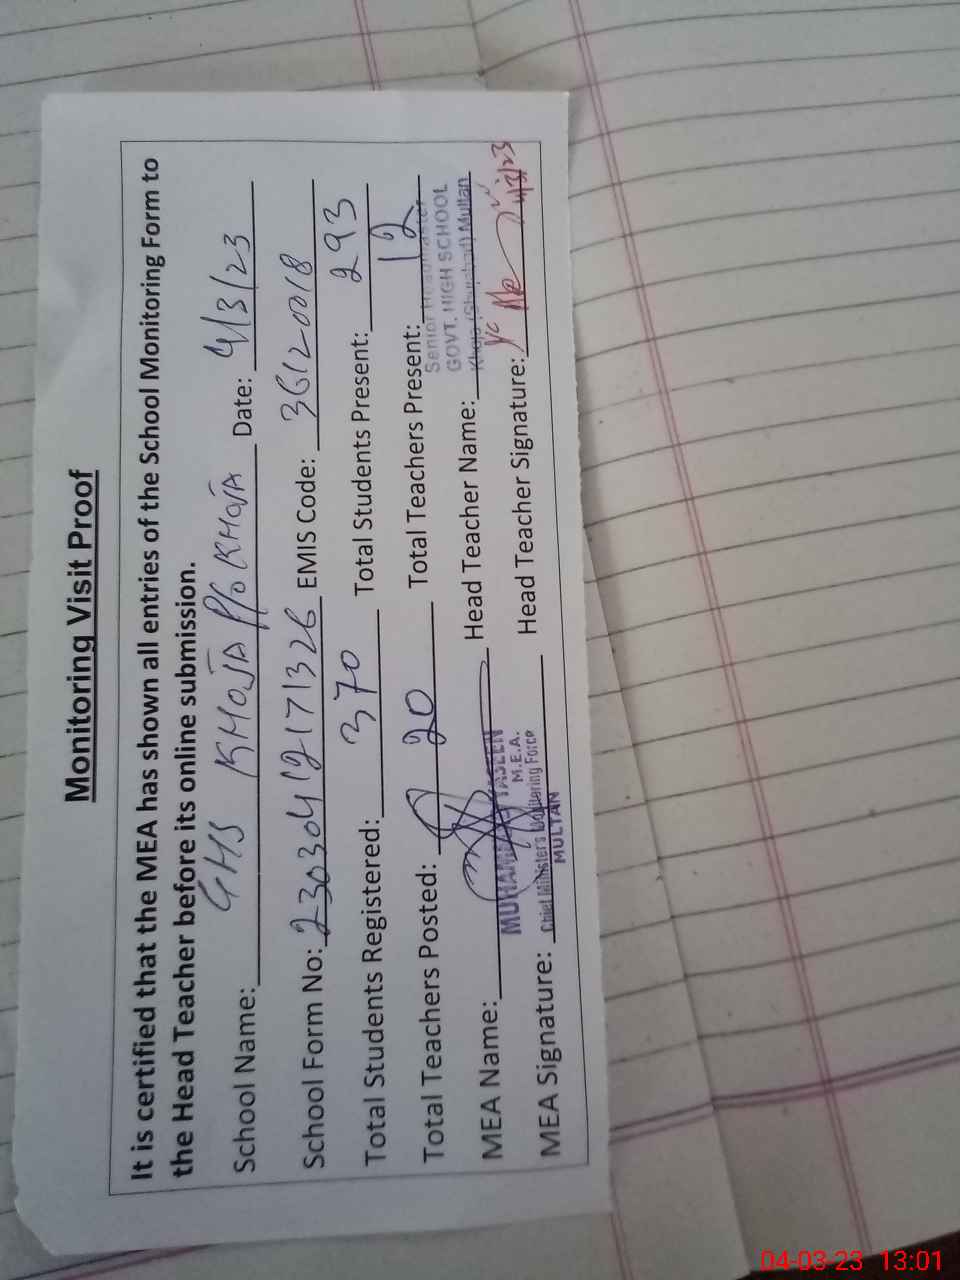 Monitoring Visit Proof
It is certified that the MEA has shown all entries of the School Monitoring Form to
the Head Teacher before its online submission.
School Name: GHS KHOJA P/O KHOJA Date: 4/3/23
School Form No: 23030412171326 EMIS Code: 36120018
Total Students Registered: 370 Total Students Present: 293
Total Teachers Posted: 20 Total Teachers Present: 12
Senior Headmaster
GOVT. HIGH SCHOOL
Khoja (Shujabad) Multan
MEA Name: Head Teacher Name:
MUHAMMAD YASEEN
M.E.A.
Chief Minister's Monitoring Force
MULTAN
MEA Signature: Head Teacher Signature:
4/3/23
04-03-23 13:01